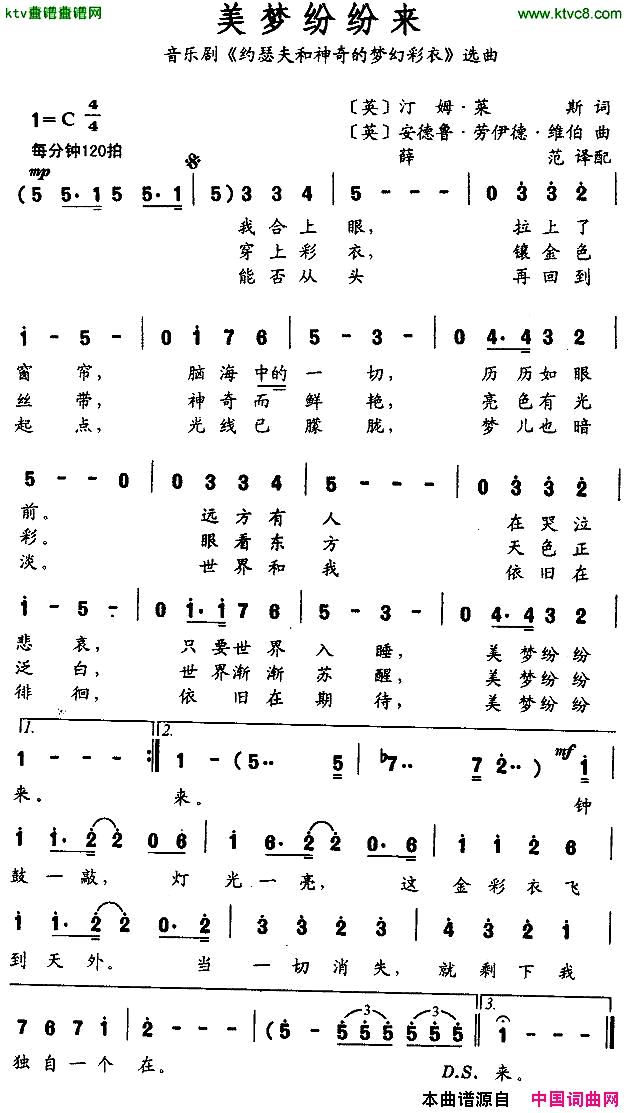 ktv盡谱盡谱网
www.ktvc8.com
美梦纷纷来
音乐剧《约瑟夫和神奇的梦幻彩衣》选曲
1=C 4/4
〔英〕汀 姆·莱 斯 词
〔英〕安德鲁·劳伊德·维伯 曲
每分钟120拍
薛 范 译配
mp
(5 5·1 5 5·1 | 5) 3 3 4 | 5 - - - | 0 3 3 2
我合上眼, 拉上了
穿上彩衣, 镶金色
能否从头 再回到
1 - 5 - | 0 1 7 6 | 5 - 3 - | 0 4·4 3 2
窗帘, 脑海中的一切, 历历如眼
丝带, 神奇而鲜艳, 亮色有光
起点, 光线已朦胧, 梦儿也暗
5 - - 0 | 0 3 3 4 | 5 - - - | 0 3 3 2
前。 远方有人 在哭泣
彩。 眼看东方 天色正
淡。 世界和我 依旧在
1 - 5 - | 0 1·1 7 6 | 5 - 3 - | 0 4·4 3 2
悲哀, 只要世界入睡, 美梦纷纷
泛白, 世界渐渐苏醒, 美梦纷纷
徘徊, 依旧在期待, 美梦纷纷
1. 2.
1 - - - :‖ 1 - (5·· 5 | ♭7·· 7 2··) 1
mf
来。 来。 钟
1 1·2 2 0 6 | 1 6·2 2 0·6 | 1 1 2 6
鼓一敲, 灯光一亮, 这金彩衣飞
1 1·2 2 0·2 | 3 3 2 3 | 4 3 2 1
到天外。 当一切消失, 就剩下我
3.
7 6 7 1 | 2 - - - | (5 - 5 5 5 5 5 5 ‖ 1 -
3 3
独自一个在。 D.S. 来。
本曲谱源自 中国词曲网